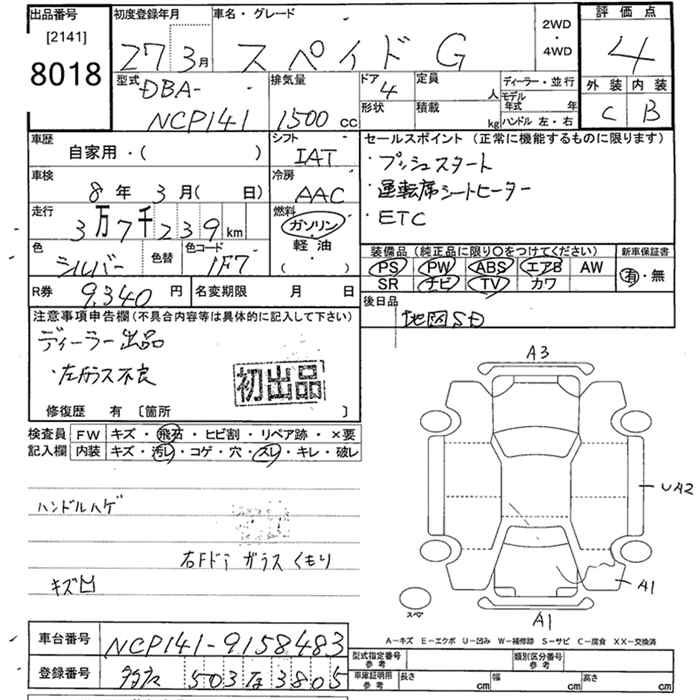 出品番号
[2141]
8018
初度登録年月
27 3月
車名・グレード
スペイド G
2WD
・
4WD
評価点
4
外装 内装
C B
型式
DBA-
NCP141
排気量
1500 cc
ドア
4
形状
定員
人
積載
kg
ディーラー・並行
モデル年式 年
ハンドル 左・右
車歴
自家用・( )
シフト
IAT
車検
8年 3月( 日)
冷房
AAC
走行
3万7千239km
燃料
ガソリン
・
軽油
・
( )
色
シルバー
色替
色コード
1F7
R券
9,340 円
名変期限 月 日
セールスポイント (正常に機能するものに限ります)
・プッシュスタート
・運転席シートヒーター
・ETC
装備品 (純正品に限り○をつけてください)
PS PW ABS エアB AW
SR ナビ TV カワ
新車保証書
有・無
後日品
地図SD
注意事項申告欄(不具合内容等は具体的に記入して下さい)
ディーラー出品
初出品
修復歴 有 [箇所 ]
検査員記入欄
FW キズ・飛石・ヒビ割・リペア跡・×要
内装 キズ・汚レ・コゲ・穴・スレ・キレ・破レ
ハンドルハゲ
右Fドア ガラスくもり
キズ凹
A3
UA2
A1
A1
スペア
A−キズ E−エクボ U−凹み W−補修跡 S−サビ C−腐食 XX−交換済
車台番号
NCP141-9158483
登録番号
503 な 3805
型式指定番号
参考
類別区分番号
参考
車庫証明用
参考
長さ cm
幅 cm
高さ cm